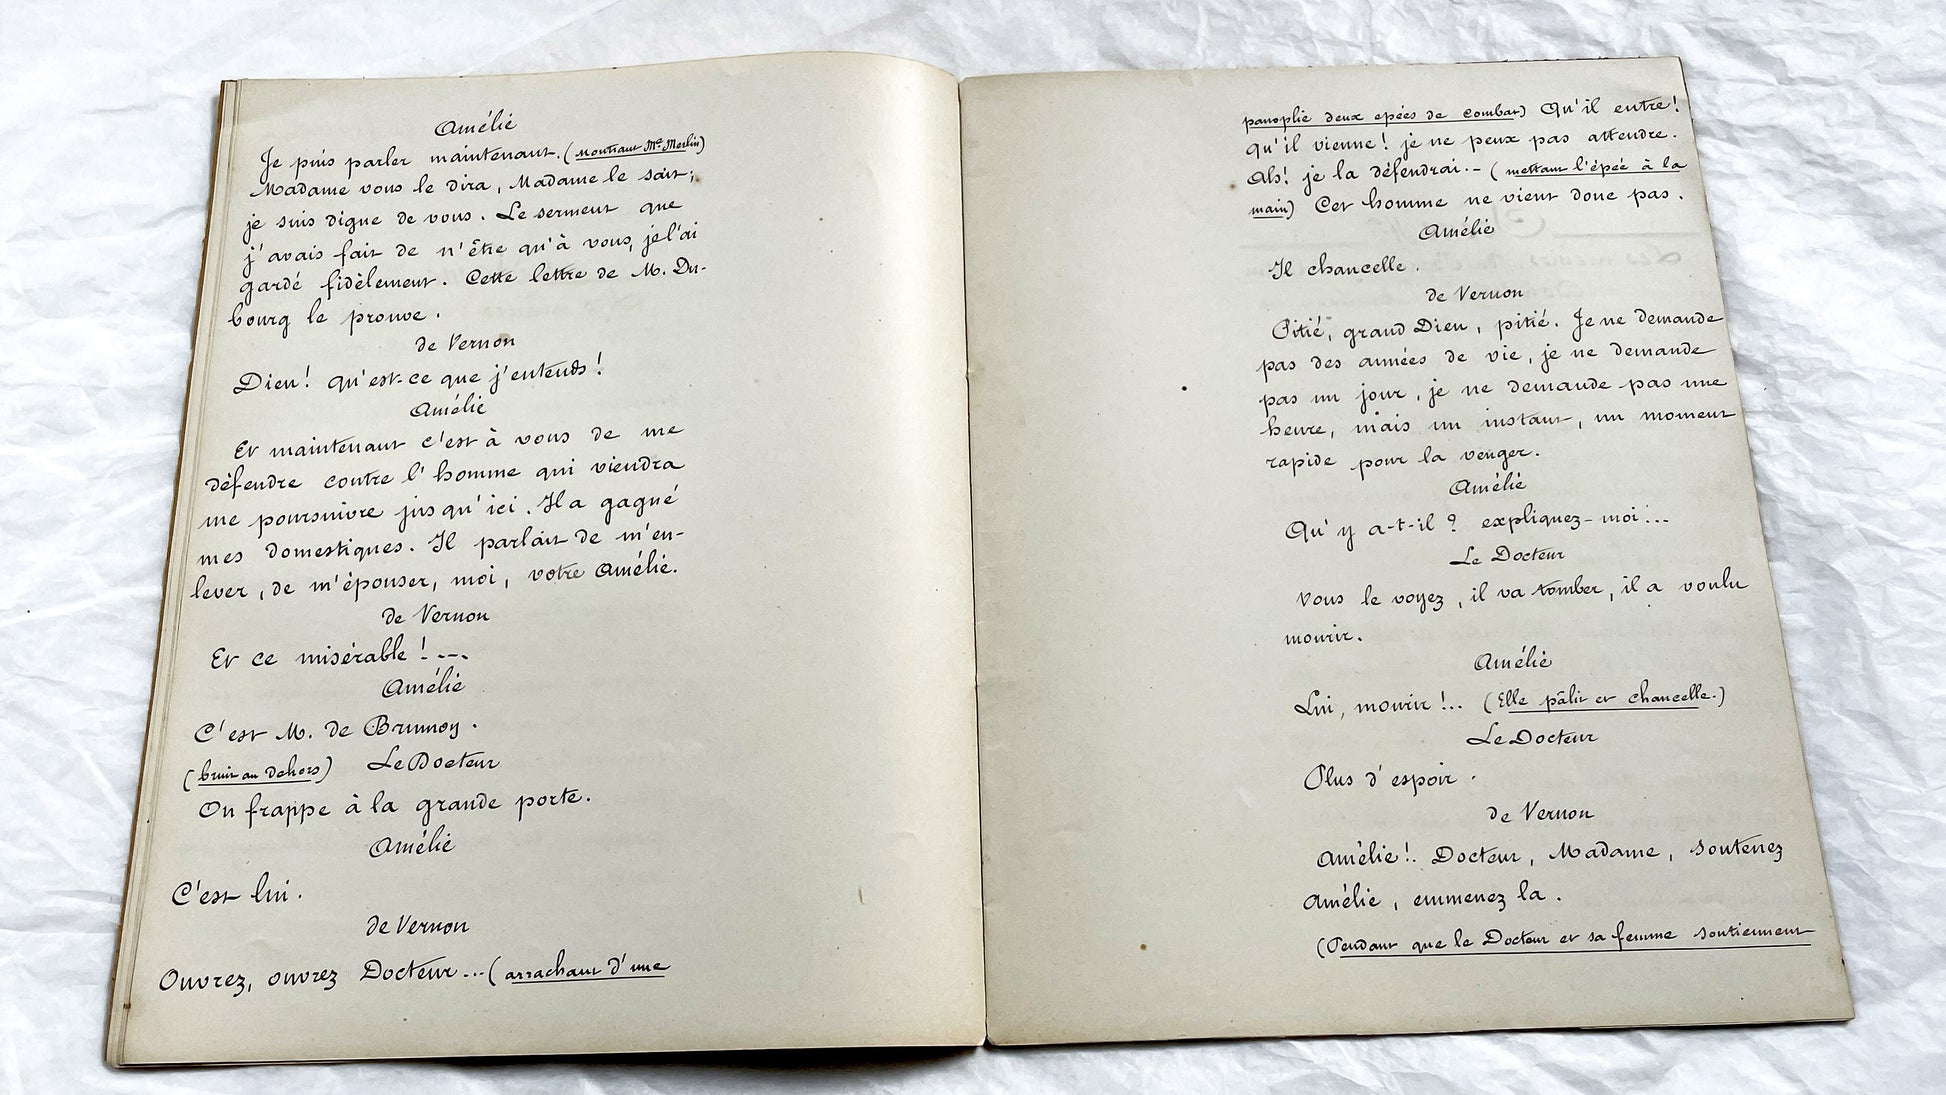 Amélie
Je puis parler maintenant. (montrant Me Merlin)
Madame vous le dira, Madame le sait;
je suis digne de vous. Le serment que
j'avais fait de n'être qu'à vous, je l'ai
gardé fidèlement. Cette lettre de M. Du-
bourg le prouve.
de Vernon
Dieu! qu'est-ce que j'entends!
Amélie
Et maintenant c'est à vous de me
défendre contre l'homme qui viendra
me poursuivre jusqu'ici. Il a gagné
mes domestiques. Il parlait de m'en-
lever, de m'épouser, moi, votre Amélie.
de Vernon
Et ce misérable!...
Amélie
C'est M. de Brunoy.
(bruit au dehors) Le Docteur
On frappe à la grande porte.
Amélie
C'est lui.
de Vernon
Ouvrez, ouvrez Docteur...(arrachant d'une
panoplie deux epées de combat) Qu'il entre!
qu'il vienne! je ne peux pas attendre.
Ah! je la défendrai.- (mettant l'épée à la
main) Cet homme ne vient donc pas.
Amélie
Il chancelle.
de Vernon
Pitié, grand Dieu, pitié. Je ne demande
pas des années de vie, je ne demande
pas un jour, je ne demande pas une
heure, mais un instant, un moment
rapide pour la venger.
Amélie
Qu'y a-t-il? expliquez-moi...
Le Docteur
Vous le voyez, il va tomber, il a voulu
mourir.
Amélie
Lui, mourir!.. (Elle pâlit et chancelle.)
Le Docteur
Plus d'espoir.
de Vernon
Amélie!. Docteur, Madame, soutenez
Amélie, emmenez la.
(Pendant que le Docteur et sa femme soutiennent